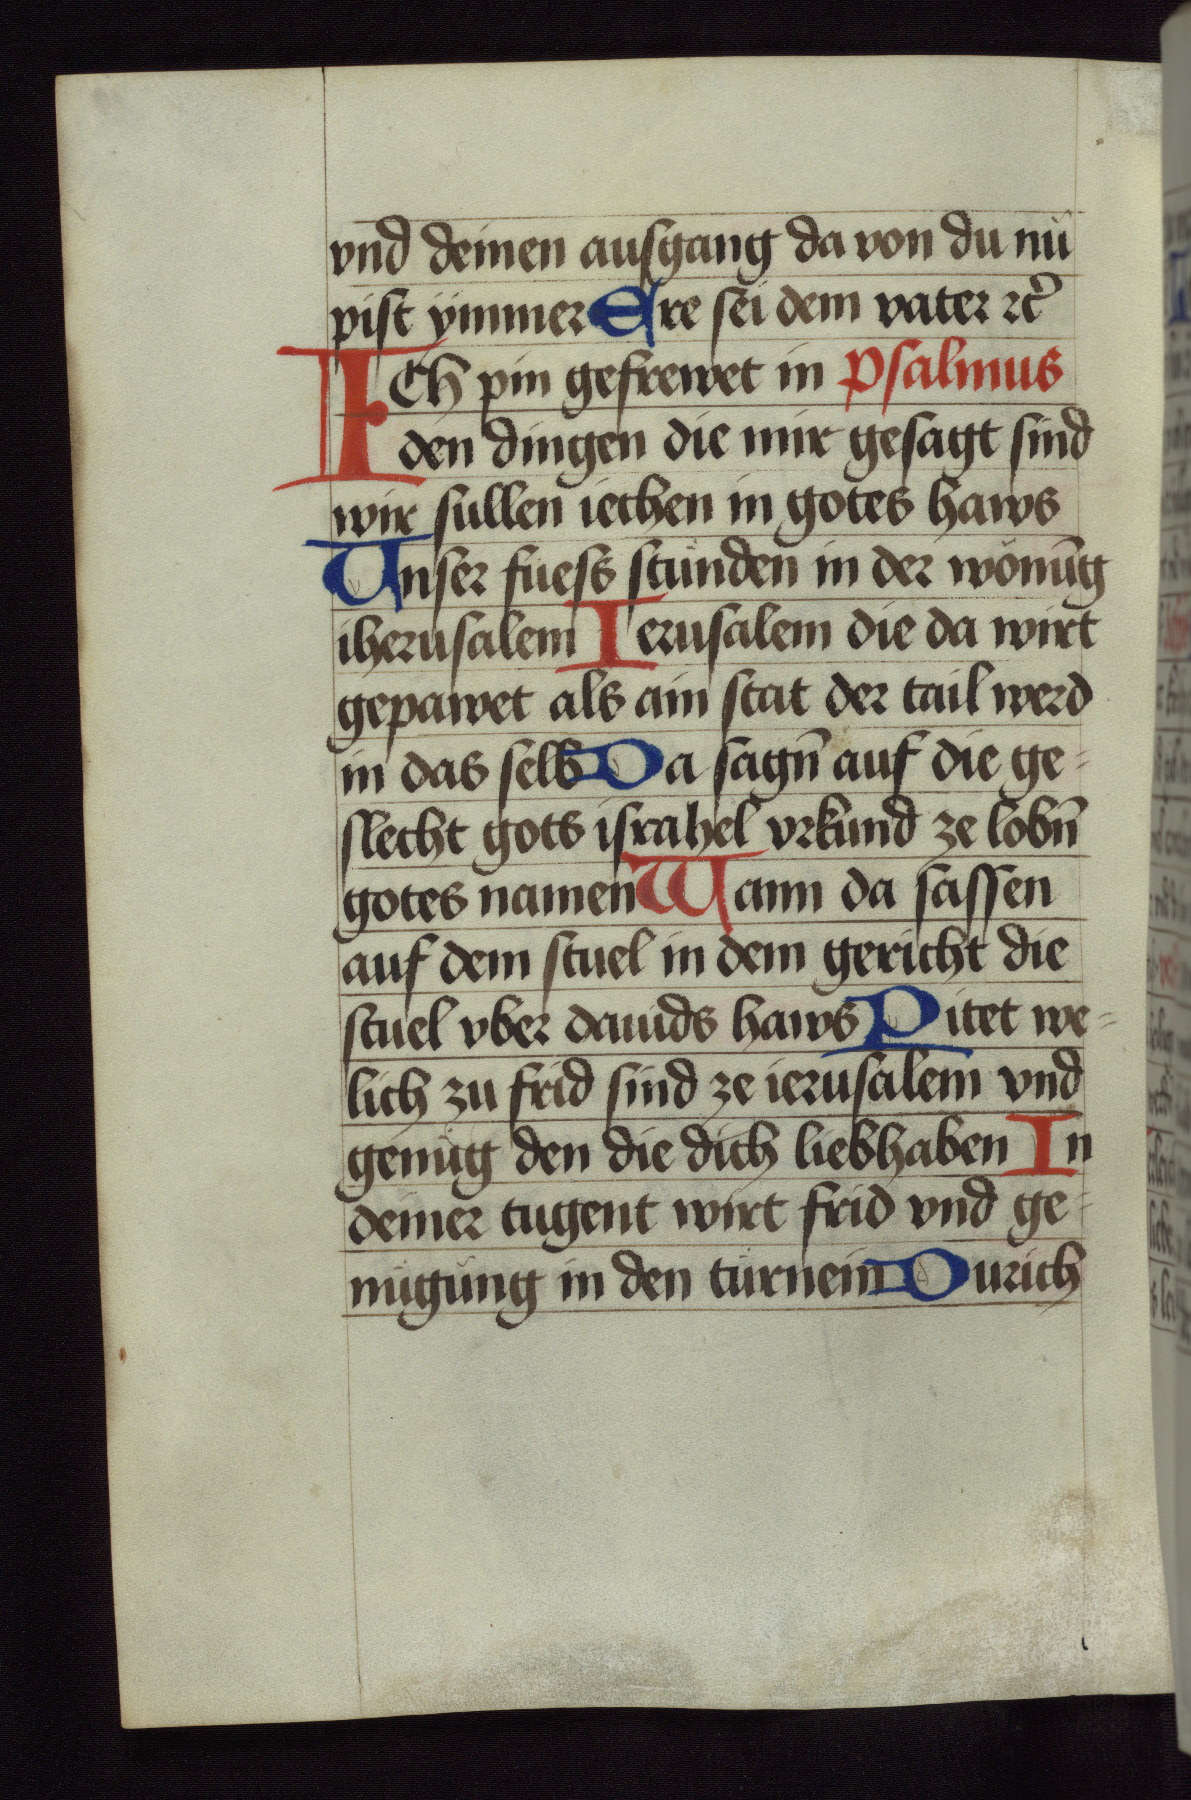 vnd deinen ausgang da von du nu
pist ÿmmer Ere sei dem vater ꝛc̉
ICh pin gefrewet in Psalmus
den dingen die mir gesagt sind
wir sullen iechen in gotes haws
Vnser fuess stůnden in der wonūg
iherusalem Ierusalem die da wirt
gepawet als ain stat der tail werd
in das selb Da sagn̄ auf die ge=
slecht gots israhel vrkund ze lobn̄
gotes namen Wann da sassen
auf dem stuel in dem gericht die
stuel vber dauids haws Pitet we=
lich zu frid sind ze ierusalem vnd
genůg den die dich liebhaben In
deiner tugent wirt frid vnd ge=
nůgung in den türnein Durich